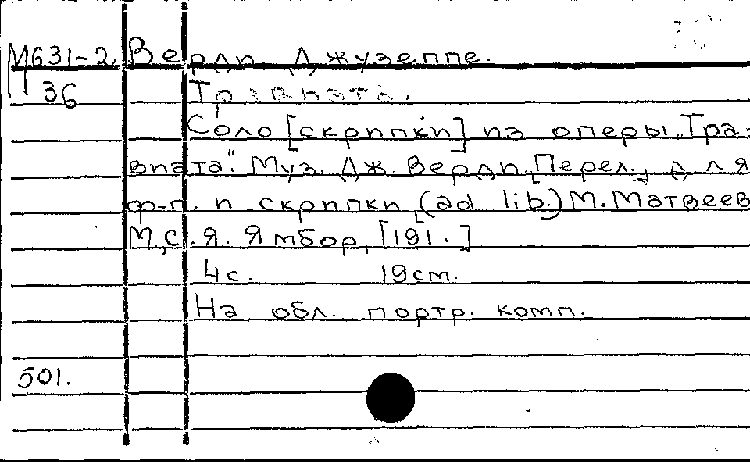 М631-2. Верди Джузеппе.
36 Травиата.
Соло [скрипки] из оперы „Тра-
виата". Муз. Дж. Верди, [Перел.] для
ф-п. и скрипки, (ad lib.) М. Матвеев
М, С. Я. Ямбор, [191.]
4с. 19см.
На обл. портр. комп.
501.